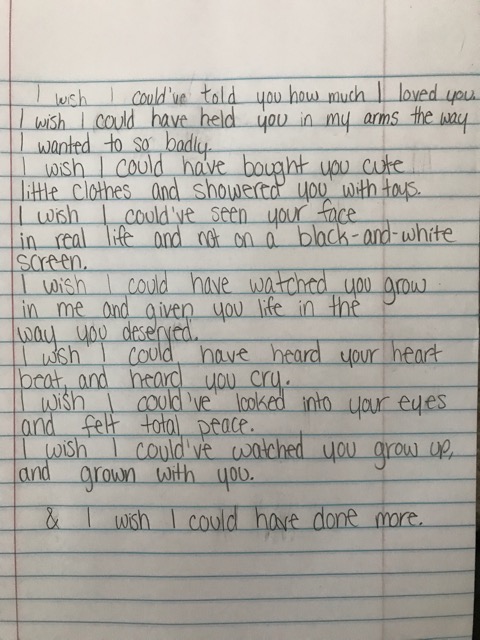 I wish I could've told you how much I loved you.
I wish I could have held you in my arms the way
I wanted to so badly.
I wish I could have bought you cute
little clothes and showered you with toys.
I wish I could've seen your face
in real life and not on a black-and-white
screen.
I wish I could have watched you grow
in me and given you life in the
way you deserved.
I wish I could have heard your heart
beat, and heard you cry.
I wish I could've looked into your eyes
and felt total peace.
I wish I could've watched you grow up,
and grown with you.
& I wish I could have done more.